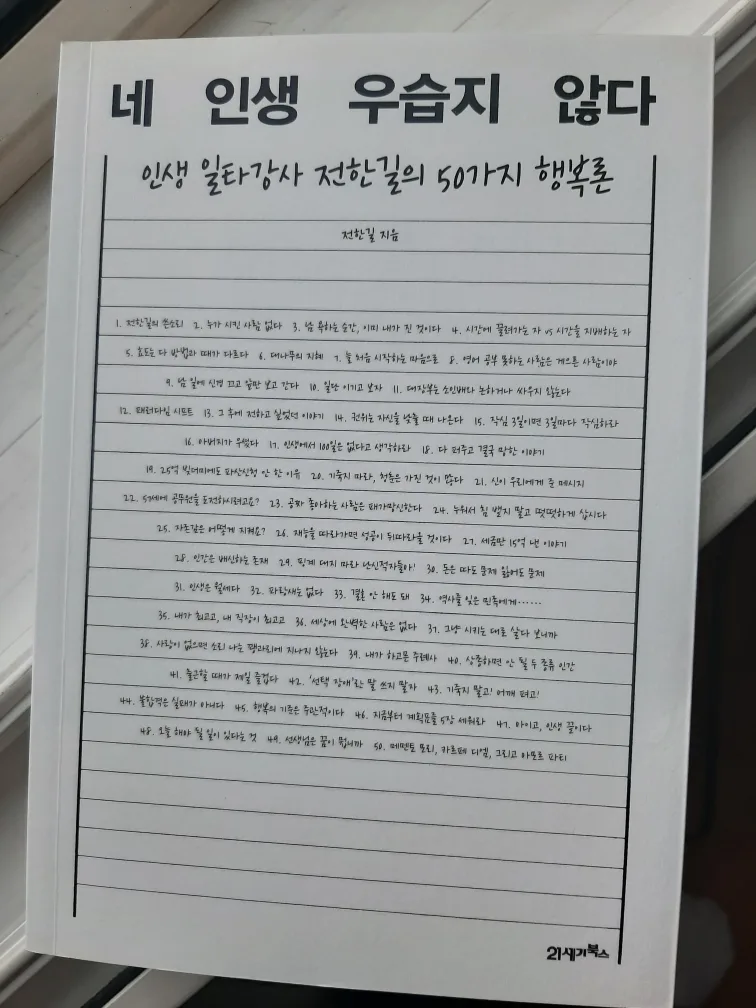 네 인생 우습지 않다
인생 일타강사 전한길의 50가지 행복론
전한길 지음
1. 전한길의 쓴소리 2. 누가 시킨 사람 없다 3. 남 욕하는 순간, 이미 내가 진 것이다 4. 시간에 끌려가는 자 vs 시간을 지배하는 자
5. 효도는 다 방법과 때가 다르다 6. 대나무의 지혜 7. 늘 처음 시작하는 마음으로 8. 영어 공부 못하는 사람은 게으른 사람이야
9. 남 일에 신경 끄고 앞만 보고 간다 10. 일단 이기고 보자 11. 대장부는 소인배와 논하거나 싸우지 않는다
12. 패러다임 시프트 13. 그 후에 전하고 싶었던 이야기 14. 권위는 자신을 낮출 때 나온다 15. 작심 3일이면 3일마다 작심하라
16. 아버지가 우셨다 17. 인생에서 100일은 없다고 생각하라 18. 다 퍼주고 결국 망한 이야기
19. 25억 빚더미에도 파산신청 안 한 이유 20. 기죽지 마라, 청춘은 가진 것이 많다 21. 신이 우리에게 준 메시지
22. 53세에 공무원을 도전하시려고요? 23. 공짜 좋아하는 사람은 패가망신한다 24. 누워서 침 뱉지 말고 떳떳하게 삽시다
25. 자존감은 어떻게 지켜요? 26. 재능을 따라가면 성공이 뒤따라올 것이다 27. 세금만 15억 낸 이야기
28. 인간은 배신하는 존재 29. 핑계 대지 마라 난신적자들아! 30. 돈은 따도 문제 잃어도 문제
31. 인생은 월세다 32. 파랑새는 없다 33. 결혼 안 해도 돼 34. 역사를 잊은 민족에게……
35. 내가 최고고, 내 직장이 최고고 36. 세상에 완벽한 사람은 없다 37. 그냥 시키는 대로 살다 보니까
38. 사랑이 없으면 소리 나는 꽹과리에 지나지 않는다 39. 내가 하고픈 주례사 40. 상종하면 안 될 두 종류 인간
41. 출근할 때가 제일 즐겁다 42. ‘선택 장애’란 말 쓰지 말자 43. 기죽지 말고! 어깨 펴고!
44. 불합격은 실패가 아니다 45. 행복의 기준은 주관적이다 46. 지금부터 계획표를 5장 세워라 47. 아이고, 인생 끝이다
48. 오늘 해야 될 일이 있다는 것 49. 선생님은 꿈이 뭡니까 50. 메멘토 모리, 카르페 디엠, 그리고 아모르 파티
21세기북스